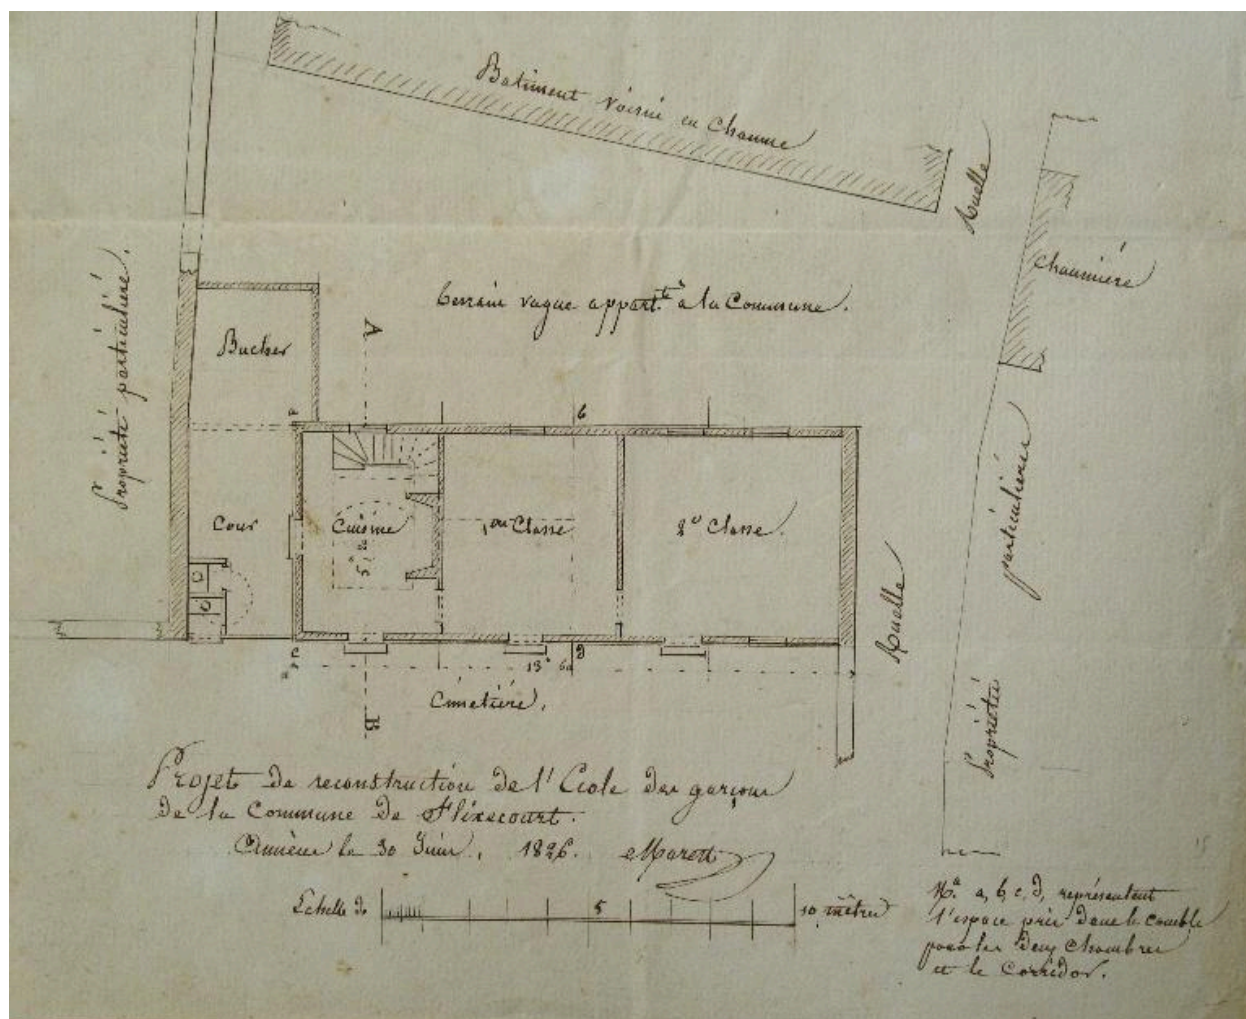 Batiment voisin en Chaume
Ruelle
Chaumière
Propriété particulière.
terrain vague appart.t à la Commune.
A
Bucher
a
b
Cour
Cuisine
1ere Classe
2e Classe.
Propriétés particulières
Ruelle
c
d
13m 60
Cimetière.
B
Projet de reconstruction de l'Ecole des garçons
de la Commune de Flixecourt.
Amiens le 30 Juin, 1826.
Echelle de 5 10 mètres
Na a, b, c, d, représentent
l'espace pris dans le comble
pour les deux Chambres
et le Corridor.